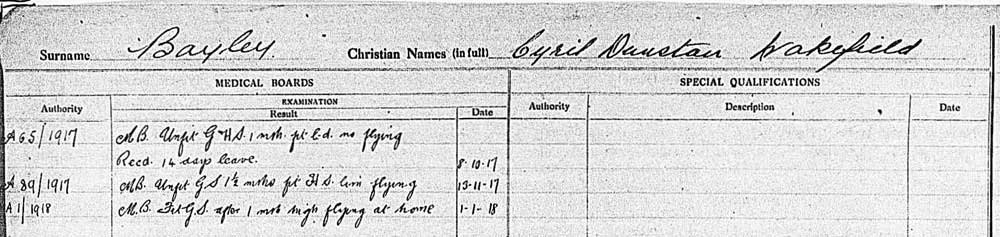 Surname Bayley. Christian Names (in full) Cyril Dunstan Wakefield
MEDICAL BOARDS SPECIAL QUALIFICATIONS
Authority EXAMINATION Authority Description Date
Result Date
A65/1917 M.B. Unfit G+H.S. 1 mth. ft l.d. no flying
Recd. 14 days leave. 8-10-17
A 89/1917 M.B. Unfit G.S 1½ mths ft H.S. flying 13-11-17
A1/1918 M.B. Fit G.S. after 1 mth high flying at home 1-1-18